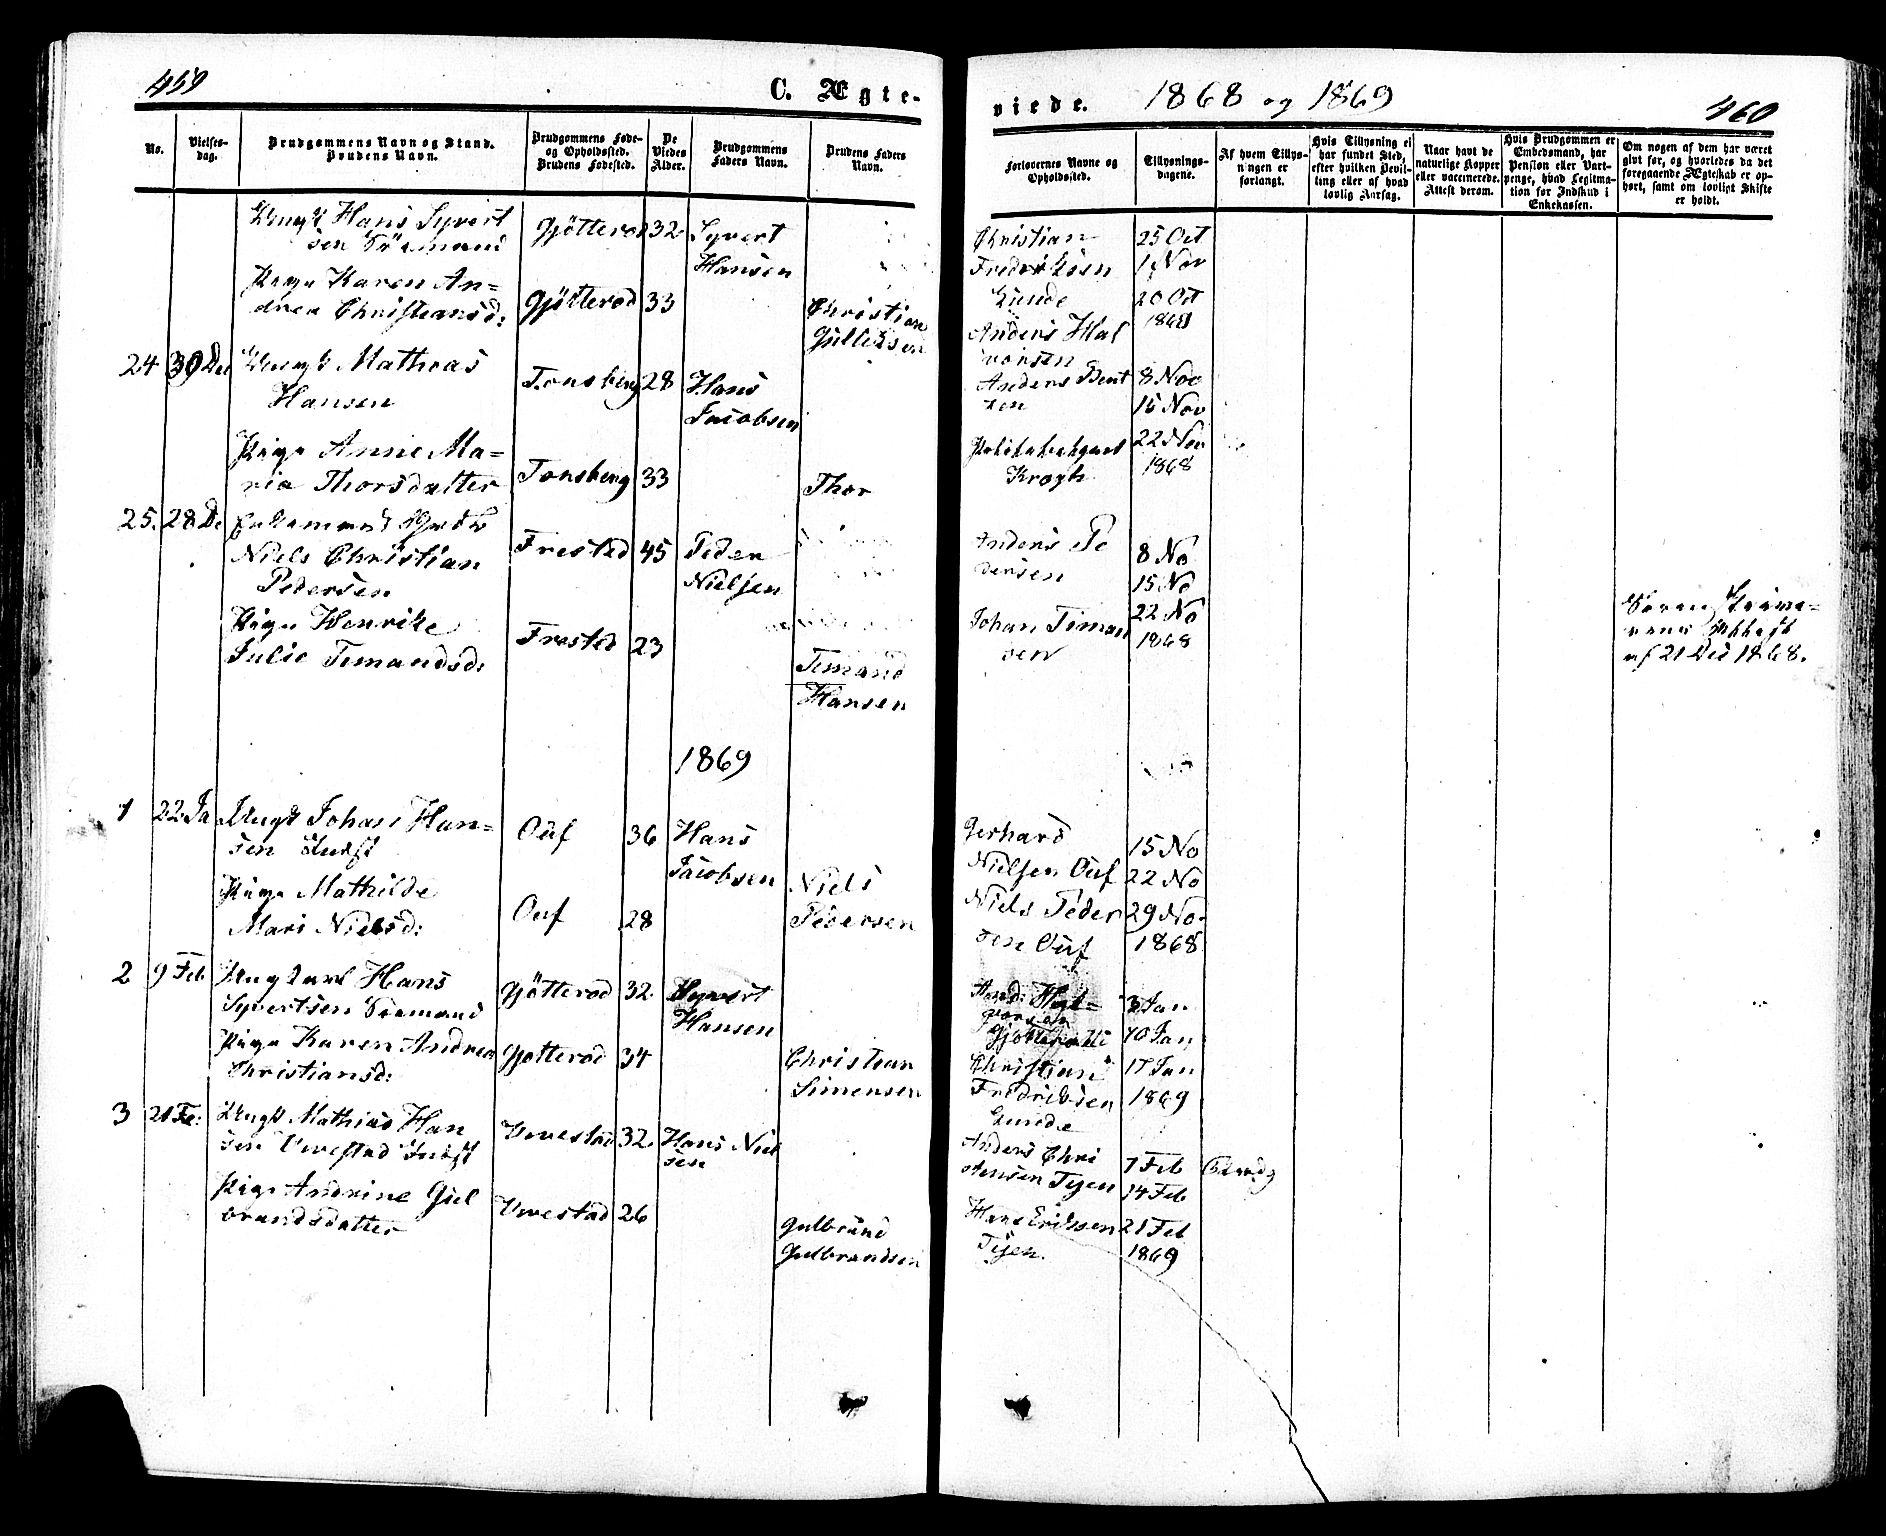 459
C. Ægte-
No.
Vielses-
dag.
Brudgommens Navn og Stand.
Brudens Navn.
Brudgommens Føde-
og Opholdssted.
Brudens Fødested.
De
Viedes
Alder.
Brudgommens
Faders Navn.
Brudens Faders
Navn.
Ungk Hans Syvert
sen Sömand
Gjötterod
32
Syvert
Hansen
Pige Karen An=
drea Christiansd:
Gjötterod
33
Christian
Gulliksen
24
30 Dec
Ungk Mathias
Hansen
Tonsberg
28
Hans
Jacobsen
Pige Anne Ma=
ria Thorsdatter
Tonsberg
33
Thor
25.
28 De
Enkemand
Niels Christian
Pedersen
Frested
45
Peder
Nielsen
Pige Henrike
Julie Timandsd:
Frested
23
Timand
Hansen
1869
1
22 Ja
Ungk Johan Han=
sen Indst
Ouf
36
Hans
Jacobsen
Pige Mathilde
Mari Nielsd:
Ouf
28
Niels
Pedersen
2
9 Feb
Ungkarl Hans
Syvertsen Sömand
Gjötterod
32
Syvert
Hansen
Pige Karen Andrea
Christiansd:
Gjotterod
34
Christian
Simensen
3
21 Fe:
Ungk Mathias Han
sen Virestad Indst
Virestad
32
Hans Niel
sen
Pige Andrine Gul
brandsdatter
Virestad
26
Gulbrand
Gulbrandsen
viede.
1868 og 1869
460
Forlovernes Navne og
Opholdssted.
Tillysnings-
dagene.
Af hvem Tillys-
ningen er
forlangt.
Hvis Tillysning ei
har fundet Sted,
efter hvilken Bevil-
ling eller af hvad
lovlig Aarsag.
Naar havt de
naturlige Kopper
eller vaccinerede.
Attest derom.
Hvis Brudgommen er
Embedsmand, har
Pension eller Vart-
penge, hvad Legitima-
tion for Indskud i
Enkekassen.
Om nogen af dem har været
givt før, og hvorledes da det
foregaaende Ægteskab er op-
hørt, samt om lovligt Skifte
er holdt.
Christian
Fredriksen
Lunde
Anders Hal
vorsen
25 Oct
1 Nov
20 Oct
1868
Anders Bent
zen
Krogh
8 Nov
15 Nov
22 Nov
1868
Anders Pe
dersen
Johan Timan
sen
8 No
15 No
22 No
1868
Soren
Attest
af 21 Dec 1868.
Gerhard
Nielsen Ouf
Niels Peder
sen Ouf
15 No
22 No
29 No
1868
And: Hal=
vorsen
Christian
Fredriksen
Lunde
3 Jan
10 Jan
17 Jan
1869
Anders Chri
stensen Tejen
Hans Ericssen
Tejen.
7 Feb
14 Feb
21 Feb
1869